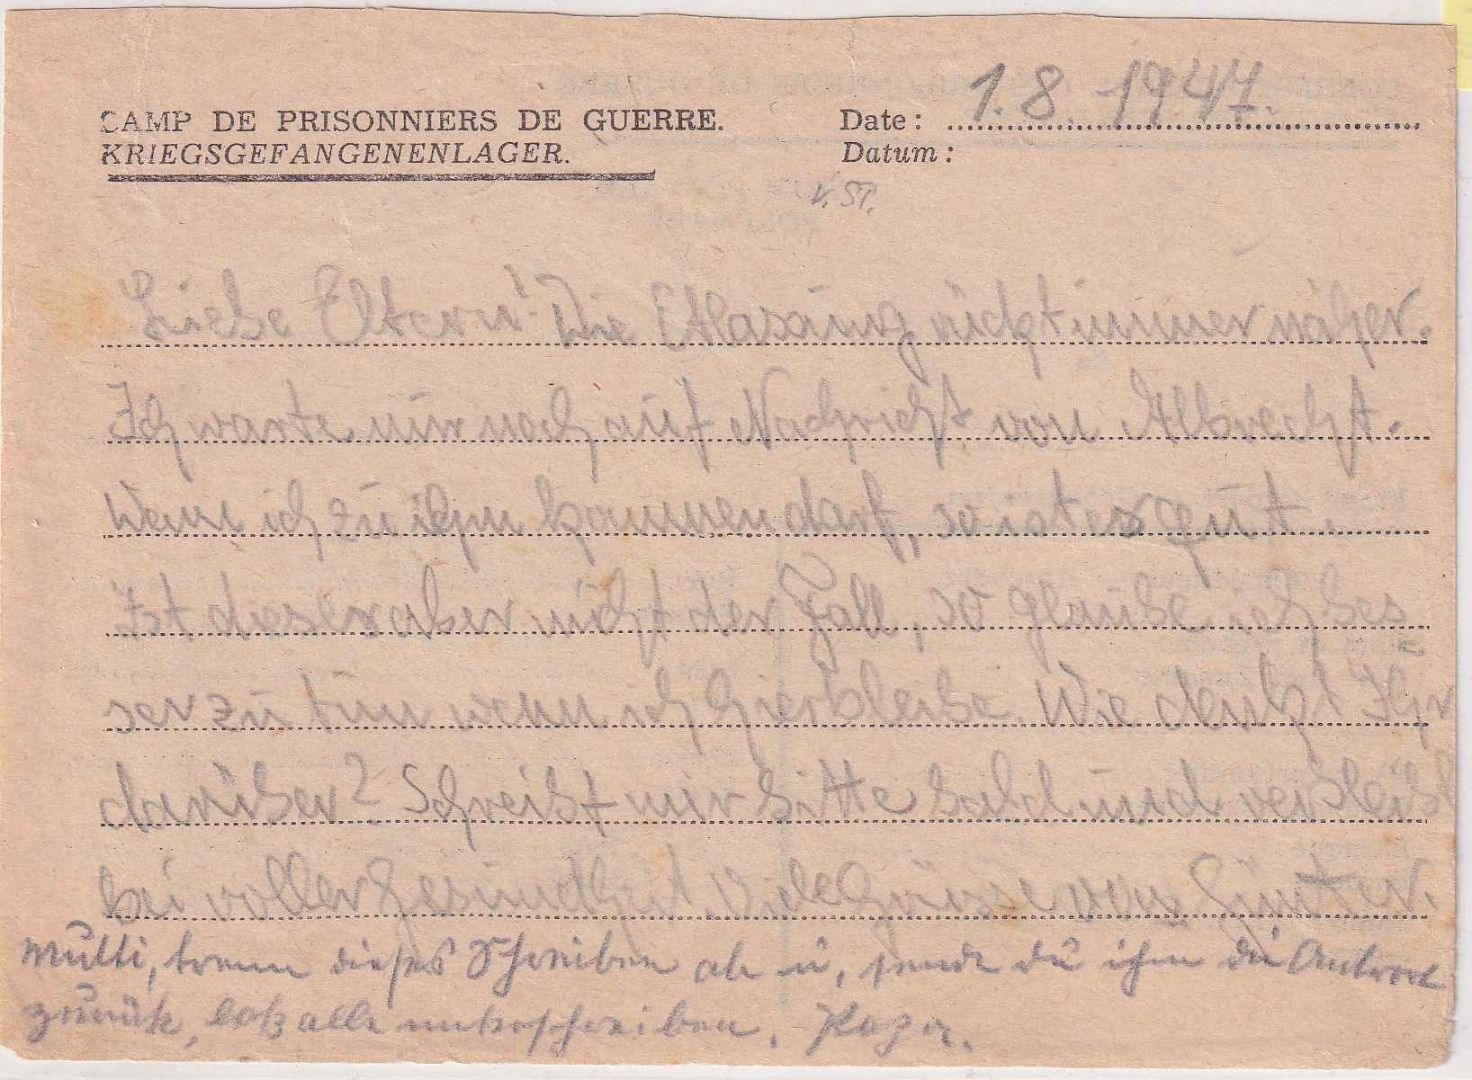 CAMP DE PRISONNIERS DE GUERRE.
KRIEGSGEFANGENENLAGER.
Date: 1.8.1947.
Datum:
V. ST.
Liebe Eltern! Die Etlassung rückt immer näher.
Ich warte nur noch auf Nachricht von Albrecht.
Wenn ich zu ihm kommen darf, so ist es gut.
Ist dieses aber nicht der Fall, so glaube ich bes
ser zu tun wenn ich hierbleibe. Wie denkt Ihr
darüber? Schreibt mir bitte bald und verbleibt
bei voller Gesundheit. Viele Grüsse von Günter.
Mutti, trenn dieses Schreiben ab u. sende du ihm die Antwort
zurück, laß alle unterschreiben. Papa.